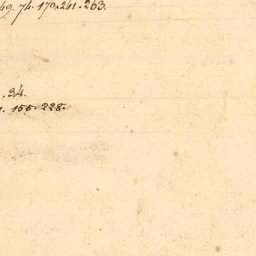 49. 74. 170. 241. 263.
. 94.
. 155. 228.